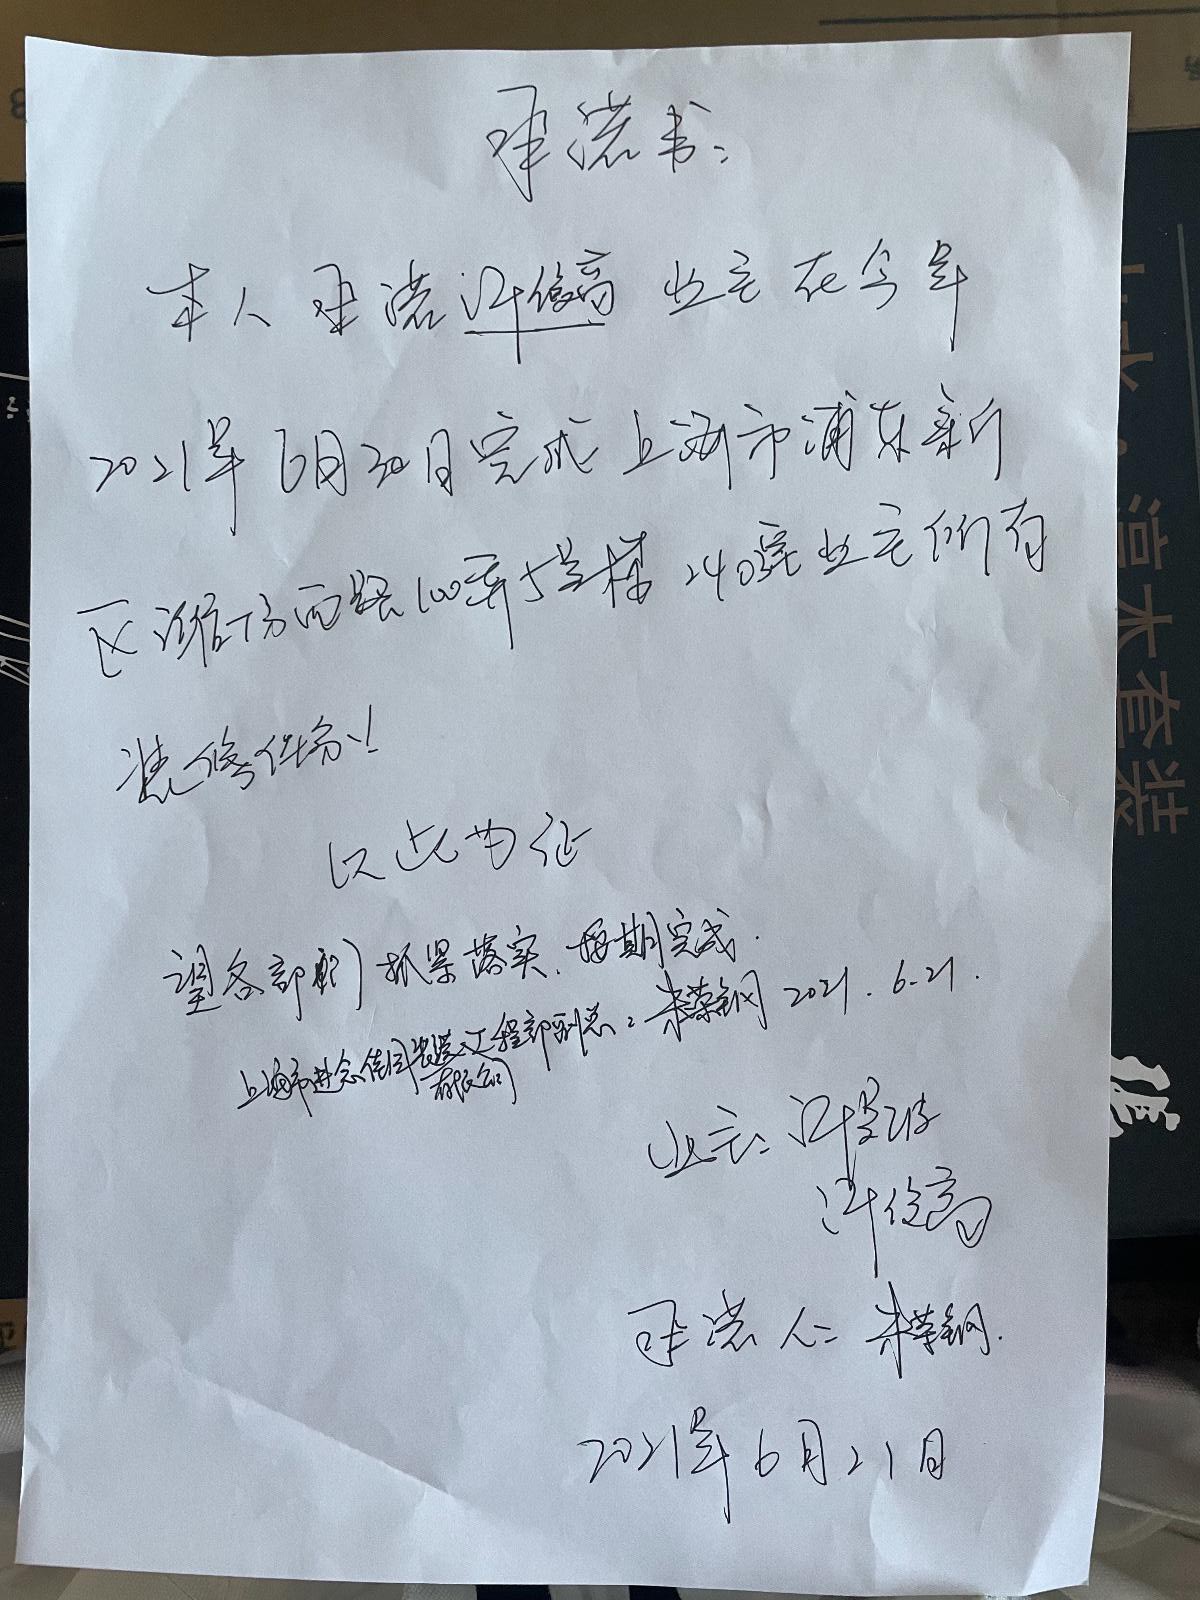 承诺书：
本人承诺许俊高业主在今年
2021年6月30日完成上海市浦东新
区 西路100弄5号楼240室业主所有
装修任务！
以此为证
望各部门抓紧落实、按期完成.
上海市进念佳园装潢工程部副总：朱荣钢 2021.6.21.
有限公司
业主：许
许俊高
承诺人：朱荣钢.
2021年6月21日
凉水套装